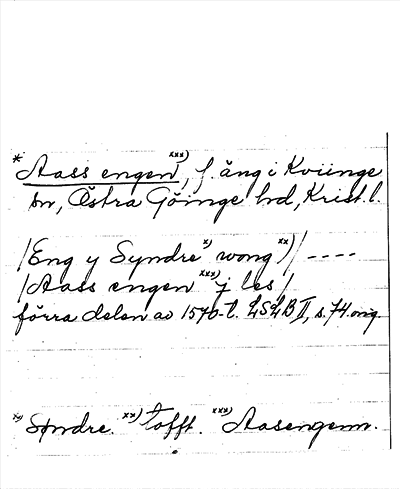 * Aass engen xxx), f. äng i Kviinge
sn, Östra Göinge hd, Krist. l.
/Eng y Syndre x) wong xx)/ ----
/Aass engen xxx) j les/
förra delen av 1570-t. LSLB II, s. 74 orig.
x) Syndre. xx) tofft. xxx) Aasengenn.